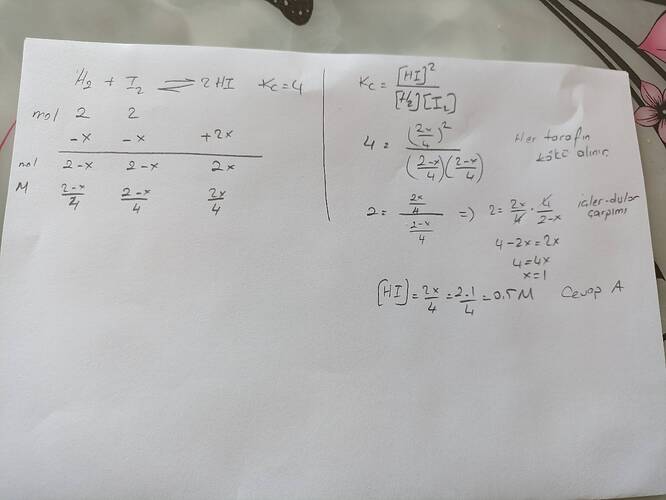 H₂ + I₂ ⇌ 2HI Kc=4
mol 2 2
-x -x +2x
mol 2-x 2-x 2x
M (2-x)/4 (2-x)/4 2x/4
Kc = [HI]²/[H₂][I₂]
4 = (2x/4)²/((2-x)/4)((2-x)/4) Her tarafın
kökü alınır.
2 = (2x/4)/((2-x)/4) => 2 = 2x/4 · 4/(2-x) içler-dışlar
çarpımı
4-2x=2x
4=4x
x=1
[HI] = 2x/4 = 2.1/4 = 0,5 M Cevap A